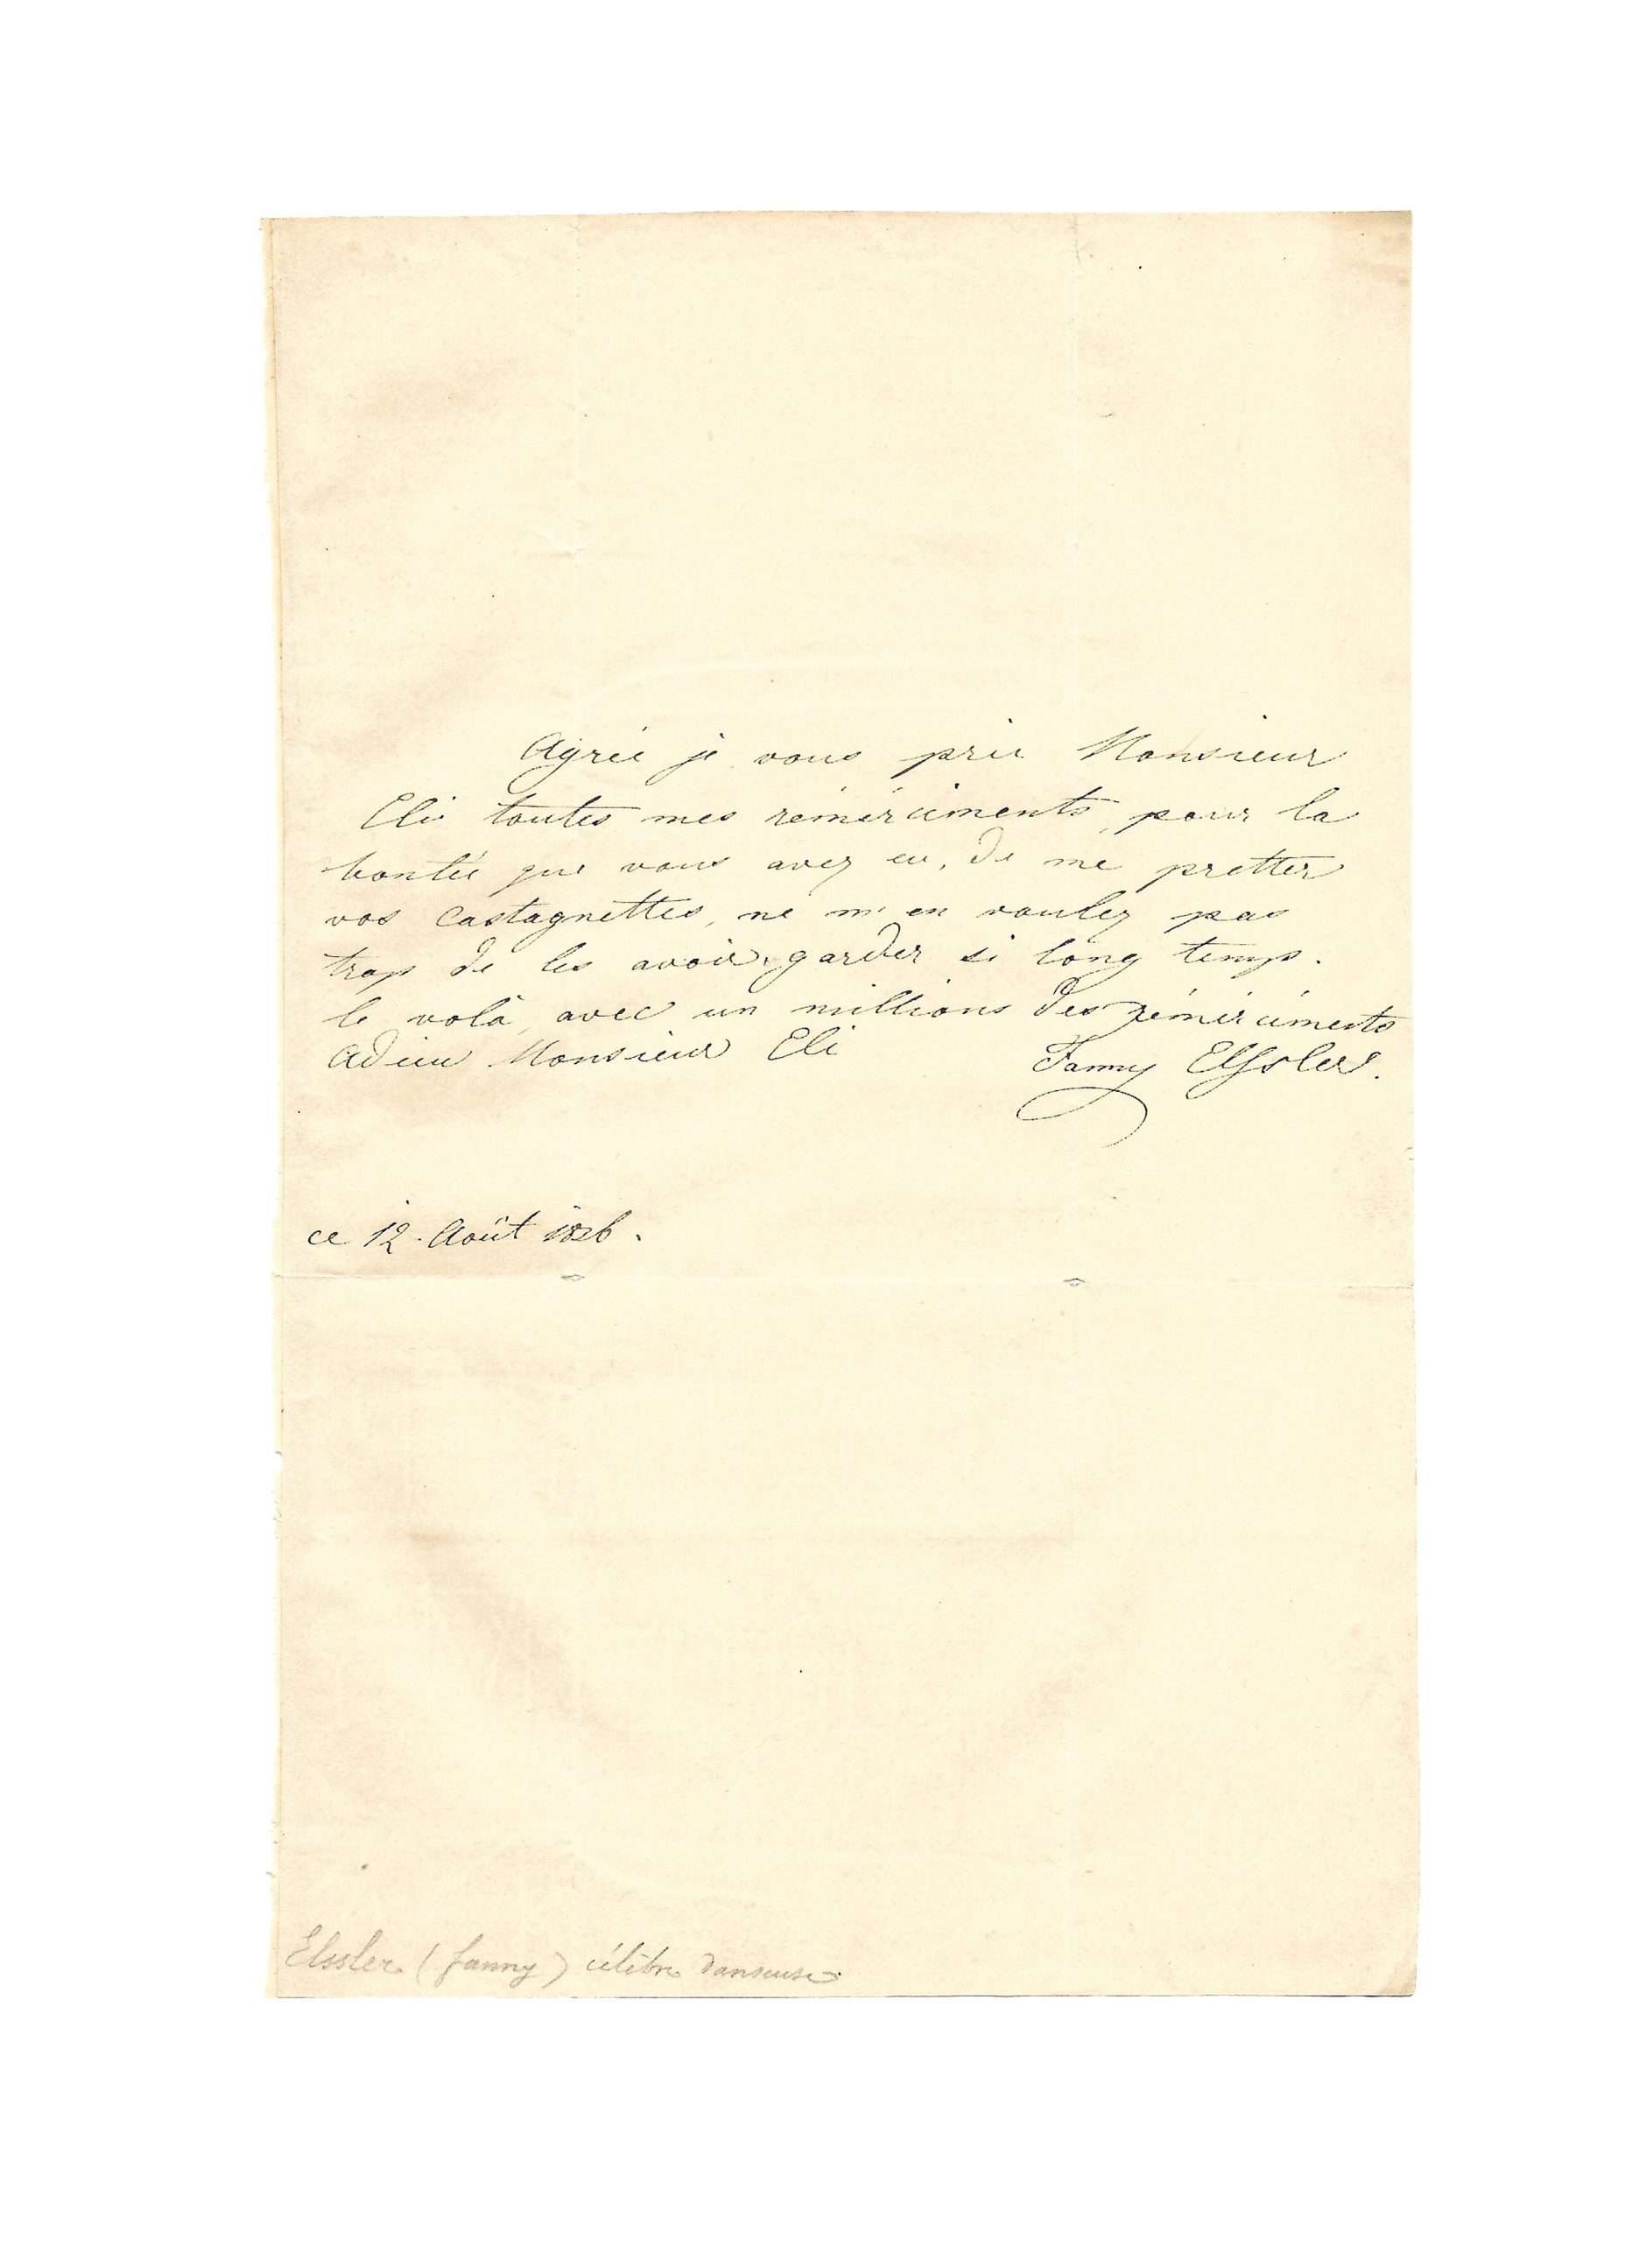 Agrée je vous prie Monsieur
Eli toutes mes rémérciments, pour la
bontée que vous avez eu, de me pretter
vos Castagnettes, ne m'en voulez pas
trop de les avoir garder si long temp.
le volà avec un millions des rémérciments
adieu Monsieur Eli
Fanny Elssler.
ce 12. Août
Elssler (fanny) célèbre danseuse.